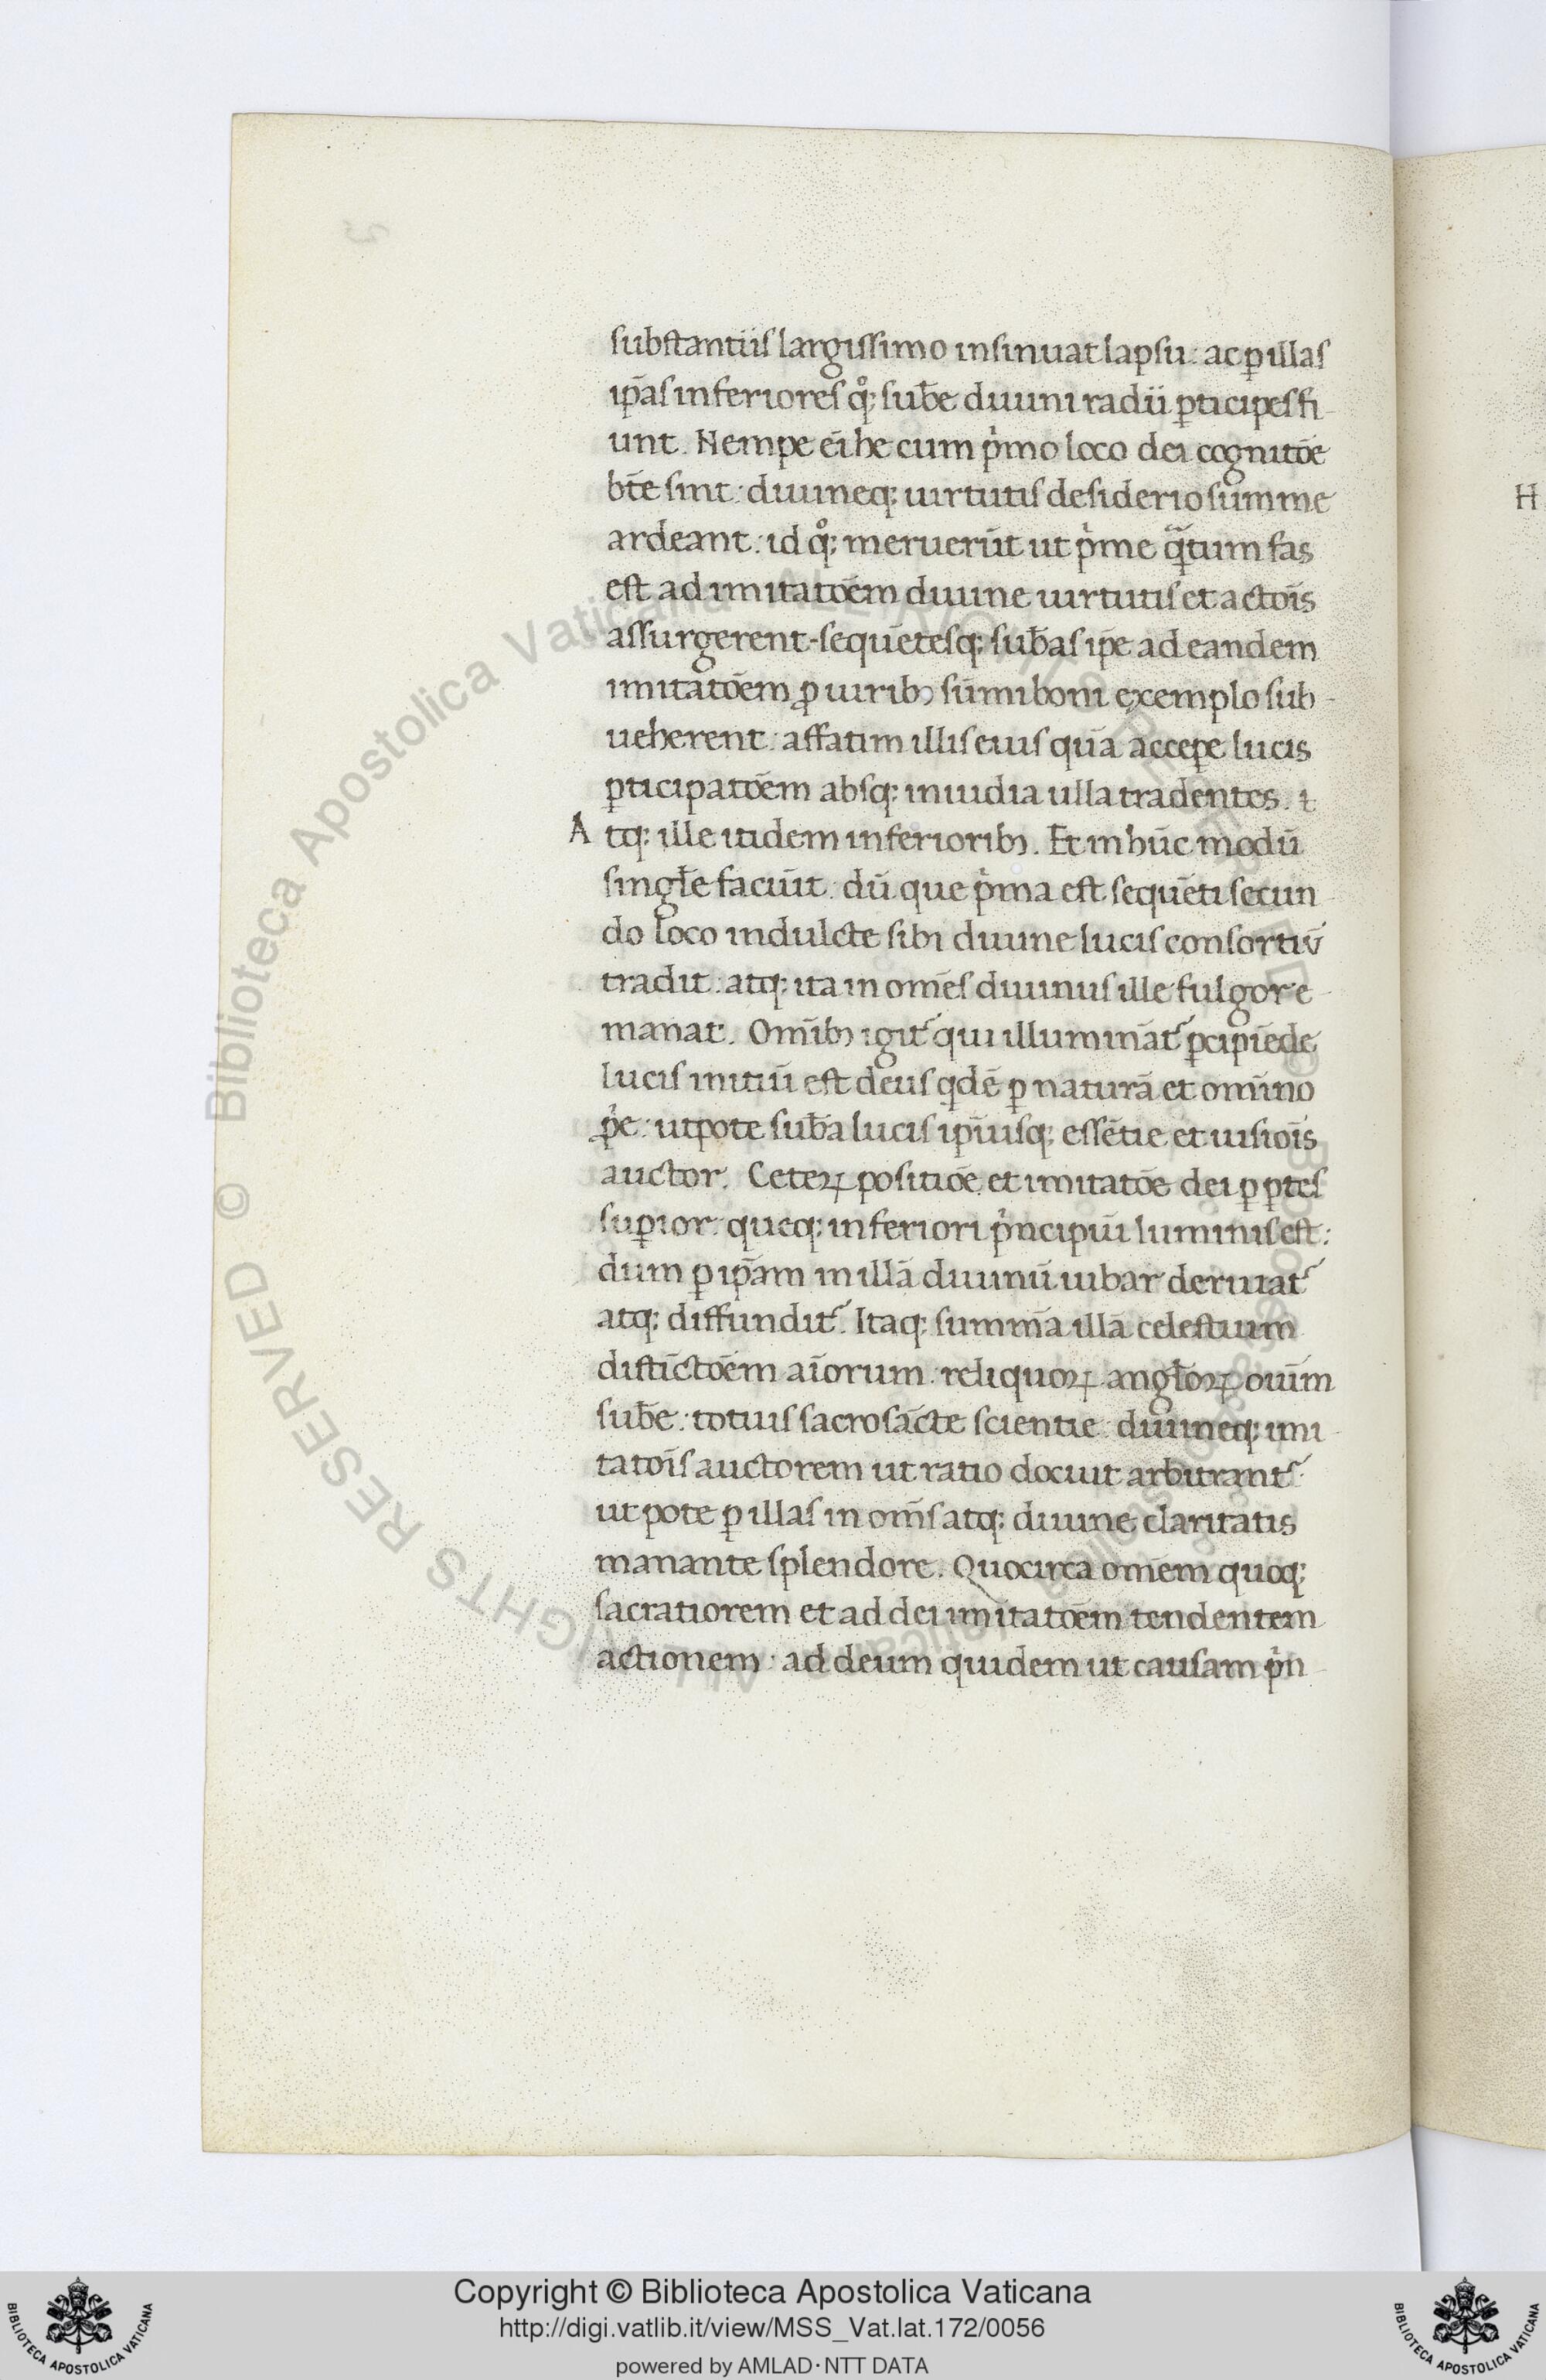 substantiis largissimo insinuat lapsu: ac ꝑ illas
ip̄as inferiores qͦꝫ sub̄e diuini radii ꝑticipes fi-
unt. Nempe ei̅ he cum pͥmo loco dei cognito̅e
bt̄e sint: diuineqꝫ uirtutis desiderio summe
ardeant: id qͦꝫ meruerūt ut pͥme qᷓtum fas
est ad imitato̅em diuine uirtutis et actoi̅s
assurgerent. sequētesqꝫ sub̄as ip̄e ad eandem
imitato̅em ꝓ uirib̫ sūmi boni exemplo sub-
ueherent: affatim illis eius quā accepe lucis
ꝑticipato̅em absqꝫ inuidia ulla tradentes. t
A tqꝫ ille itidem inferiorib̫. Et in hūc modū
singłe faciūt: dū que pͥma est sequēti secun
do loco indulcte sibi diuine lucis consortiū
tradit: atqꝫ ita in om̄es diuinus ille fulgor e-
manat. Om̄ib̫ igit᷑ qui illumināt᷑ ꝑcipiēde
lucis initiū est deus qdē ꝑ naturā et omīno
pͥe: utpote sub̄a lucis ip̄iusqꝫ essētie et uisioi̅s
auctor. Ceteꝝ positio̅e et imitato̅e dei ꝑ ꝑtes
suꝑior. queqꝫ inferiori pͥncipiū luminis est:
dum ꝑ ip̄am in illā diuinū iubar deriuat᷑
atqꝫ diffundit᷑. Itaqꝫ summā illā celestium
distīcto̅em aīorum: reliquoꝝ angłoꝝ ouīm
sub̄e: totius sacrosācte scientie: diuineqꝫ imi-
tatoi̅s auctorem ut ratio docuit arbitrant᷑.
utpote ꝑ illas in om̄s atqꝫ diuine claritatis
manante splendore. Quocirca om̄em quoqꝫ
sacratiorem et ad dei imitato̅em tendentem
actionem: ad deum quidem ut causam pͥn
H
© Biblioteca Apostolica Vaticana
ALL RIGHTS RESERVED
Copyright © Biblioteca Apostolica Vaticana
http://digi.vatlib.it/view/MSS_Vat.lat.172/0056
powered by AMLAD·NTT DATA
BIBLIOTECA APOSTOLICA VATICANA
BIBLIOTECA APOSTOLICA VATICANA